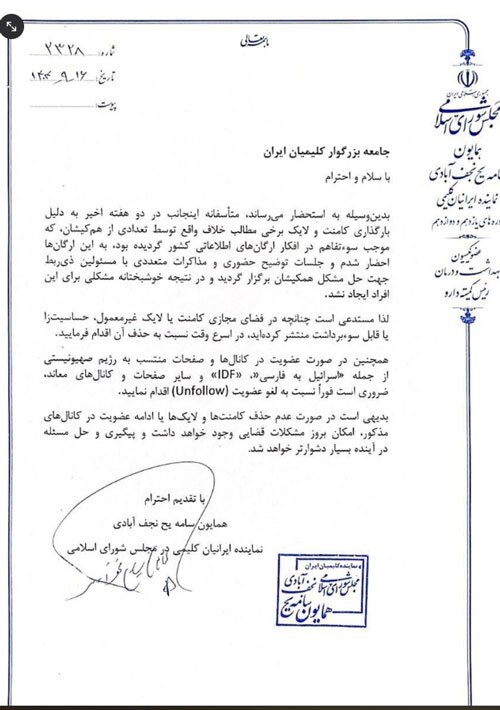 باسمه‌تعالی
شماره: ۲۳۲۸
تاریخ: ۱۴۰۴٫۹٫۱۶
پیوست:
جمهوری اسلامی ایران
مجلس شورای اسلامی
همایون
سامه یح نجف آبادی
نماینده ایرانیان کلیمی
دوره های یازدهم و دوازدهم
عضو کمیسیون
بهداشت و درمان
رئیس کمیته دارو
جامعه بزرگوار کلیمیان ایران
با سلام و احترام
بدین‌وسیله به استحضار می‌رساند، متأسفانه اینجانب در دو هفته اخیر به دلیل
بارگذاری کامنت و لایک برخی مطالب خلاف واقع توسط تعدادی از هم‌کیشان، که
موجب سوءتفاهم در افکار ارگان‌های اطلاعاتی کشور گردیده بود، به این ارگان‌ها
احضار شدم و جلسات توضیح حضوری و مذاکرات متعددی با مسئولین ذی‌ربط
جهت حل مشکل همکیشان برگزار گردید و در نتیجه خوشبختانه مشکلی برای این
افراد ایجاد نشد.
لذا مستدعی است چنانچه در فضای مجازی کامنت یا لایک غیرمعمول، حساسیت‌زا
یا قابل سوءبرداشت منتشر کرده‌اید، در اسرع وقت نسبت به حذف آن اقدام فرمایید.
همچنین در صورت عضویت در کانال‌ها و صفحات منتسب به رژیم صهیونیستی
از جمله «اسرائیل به فارسی»، «IDF» و سایر صفحات و کانال‌های معاند،
ضروری است فوراً نسبت به لغو عضویت (Unfollow) اقدام نمایید.
بدیهی است در صورت عدم حذف کامنت‌ها و لایک‌ها یا ادامه عضویت در کانال‌های
مذکور، امکان بروز مشکلات قضایی وجود خواهد داشت و پیگیری و حل مسئله
در آینده بسیار دشوارتر خواهد شد.
با تقدیم احترام
همایون سامه یح نجف آبادی
نماینده ایرانیان کلیمی در مجلس شورای اسلامی
نماینده کلیمیان ایران
مجلس شورای اسلامی
همایون سامه یح نجف آبادی